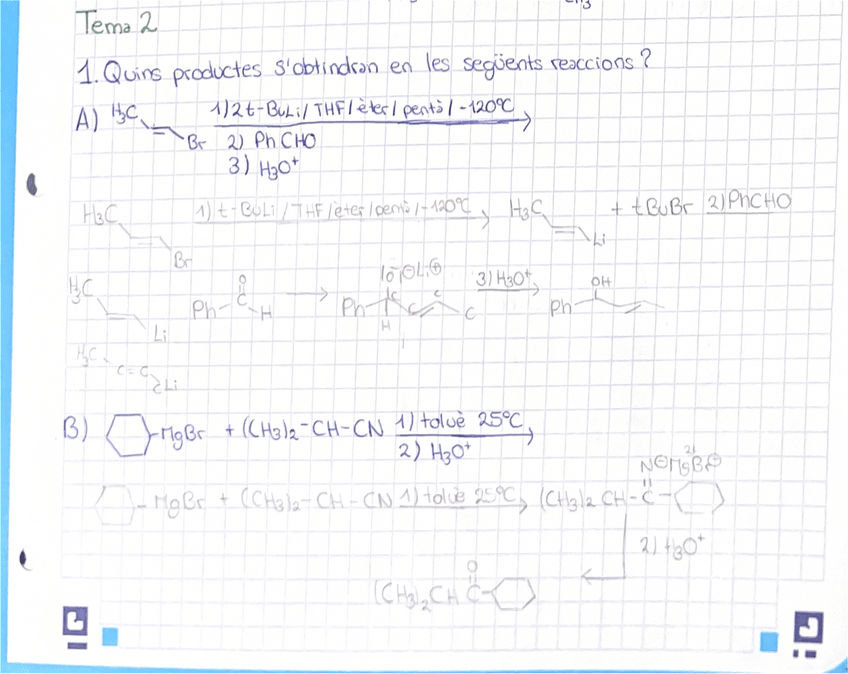 CH3
Tema 2
1. Quins productes s'obtindran en les següents reaccions?
A) H3C Br 1) 2 t-BuLi / THF / èter / pentà / -120ºC
2) PhCHO
3) H3O+
H3C Br 1) t-BuLi / THF / èter / pentà / -120ºC H3C Li + tBuBr 2) PhCHO
H3C Li Ph-C-H O Ph C H C C C Li⊕ 3) H3O+ OH Ph
H3C C=C Li
B) MgBr + (CH3)2-CH-CN 1) toluè 25ºC
2) H3O+
N⊖ MgBr⊕
MgBr + (CH3)2-CH-CN 1) toluè 25ºC (CH3)2CH-C
2) H3O+
O
(CH3)2CH C